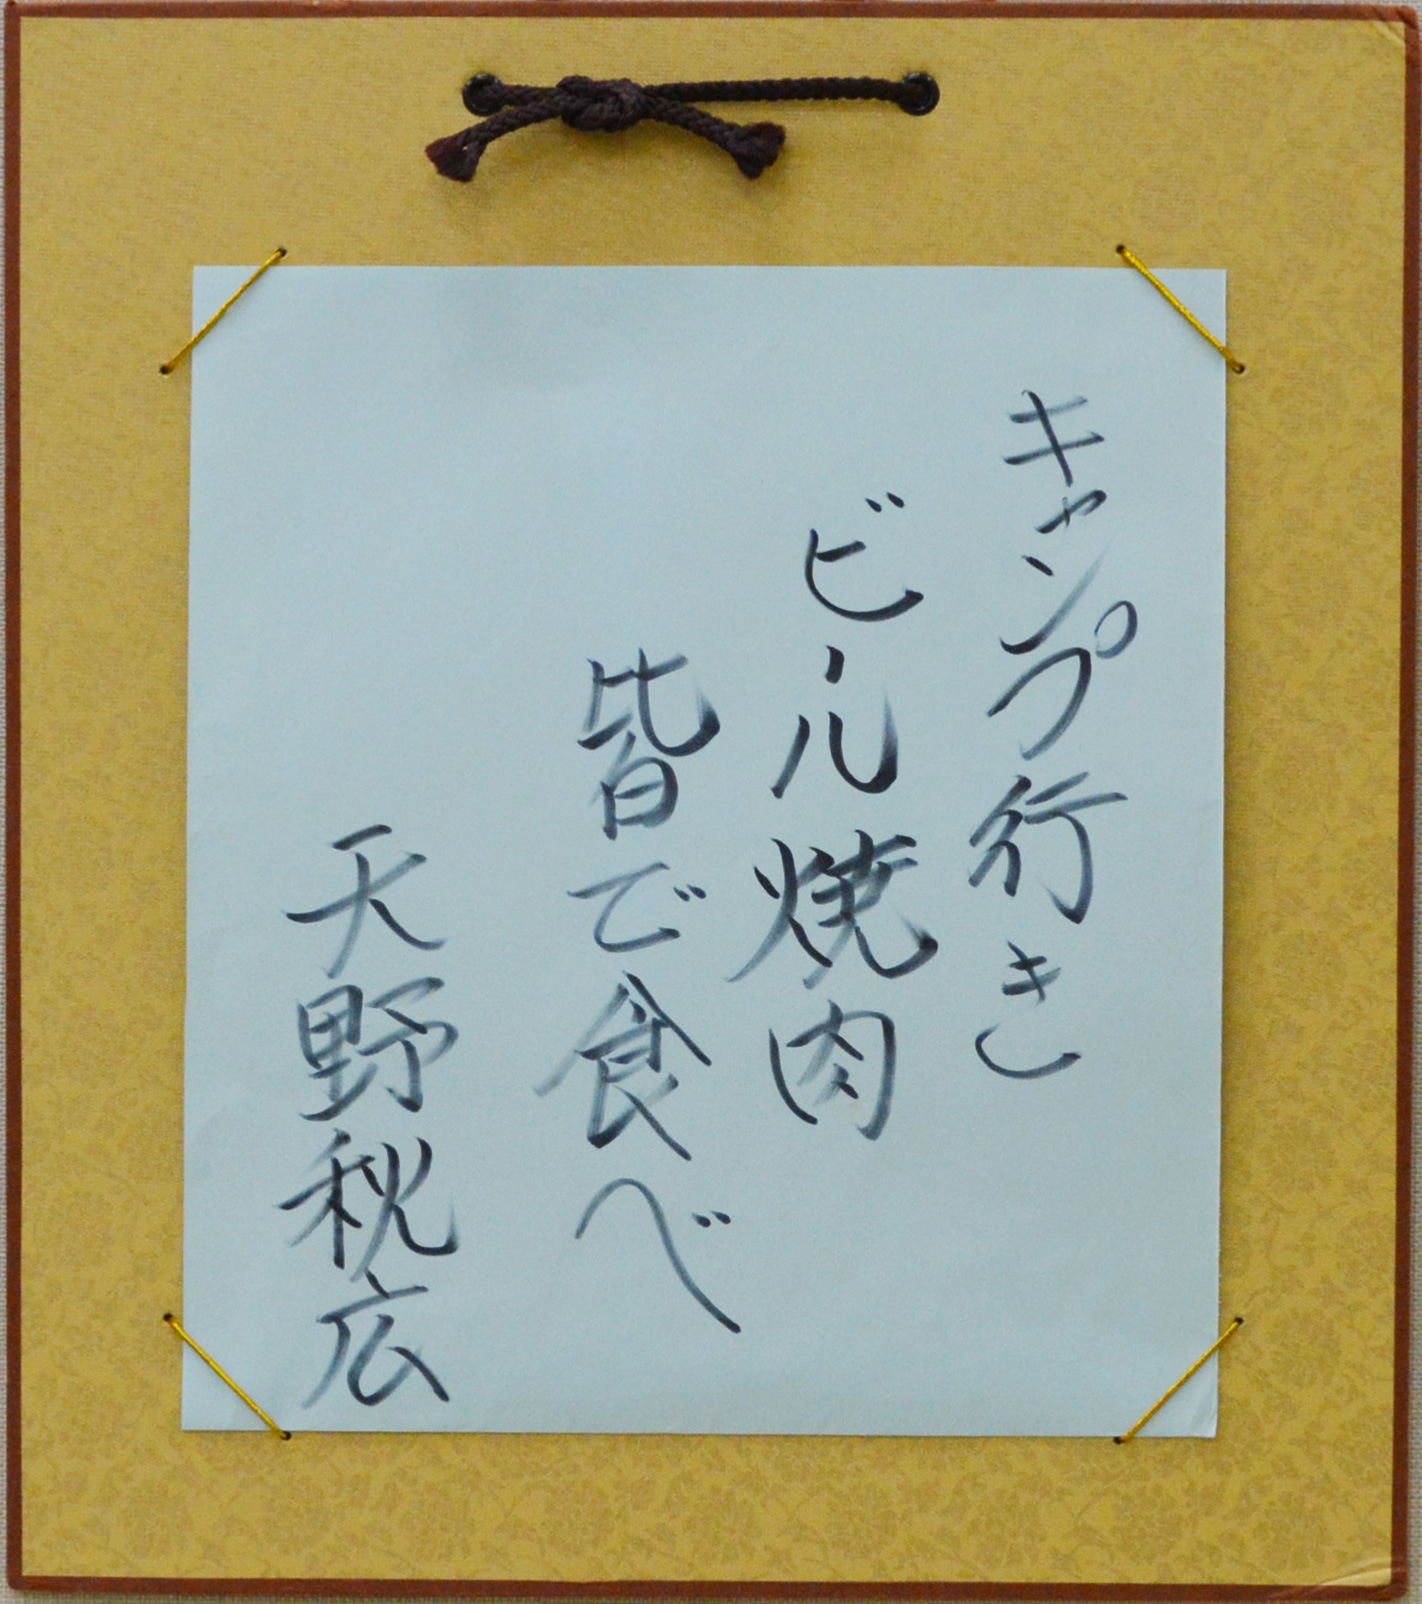 キャンプ行き
ビール焼肉
皆で食べ
天野秋広